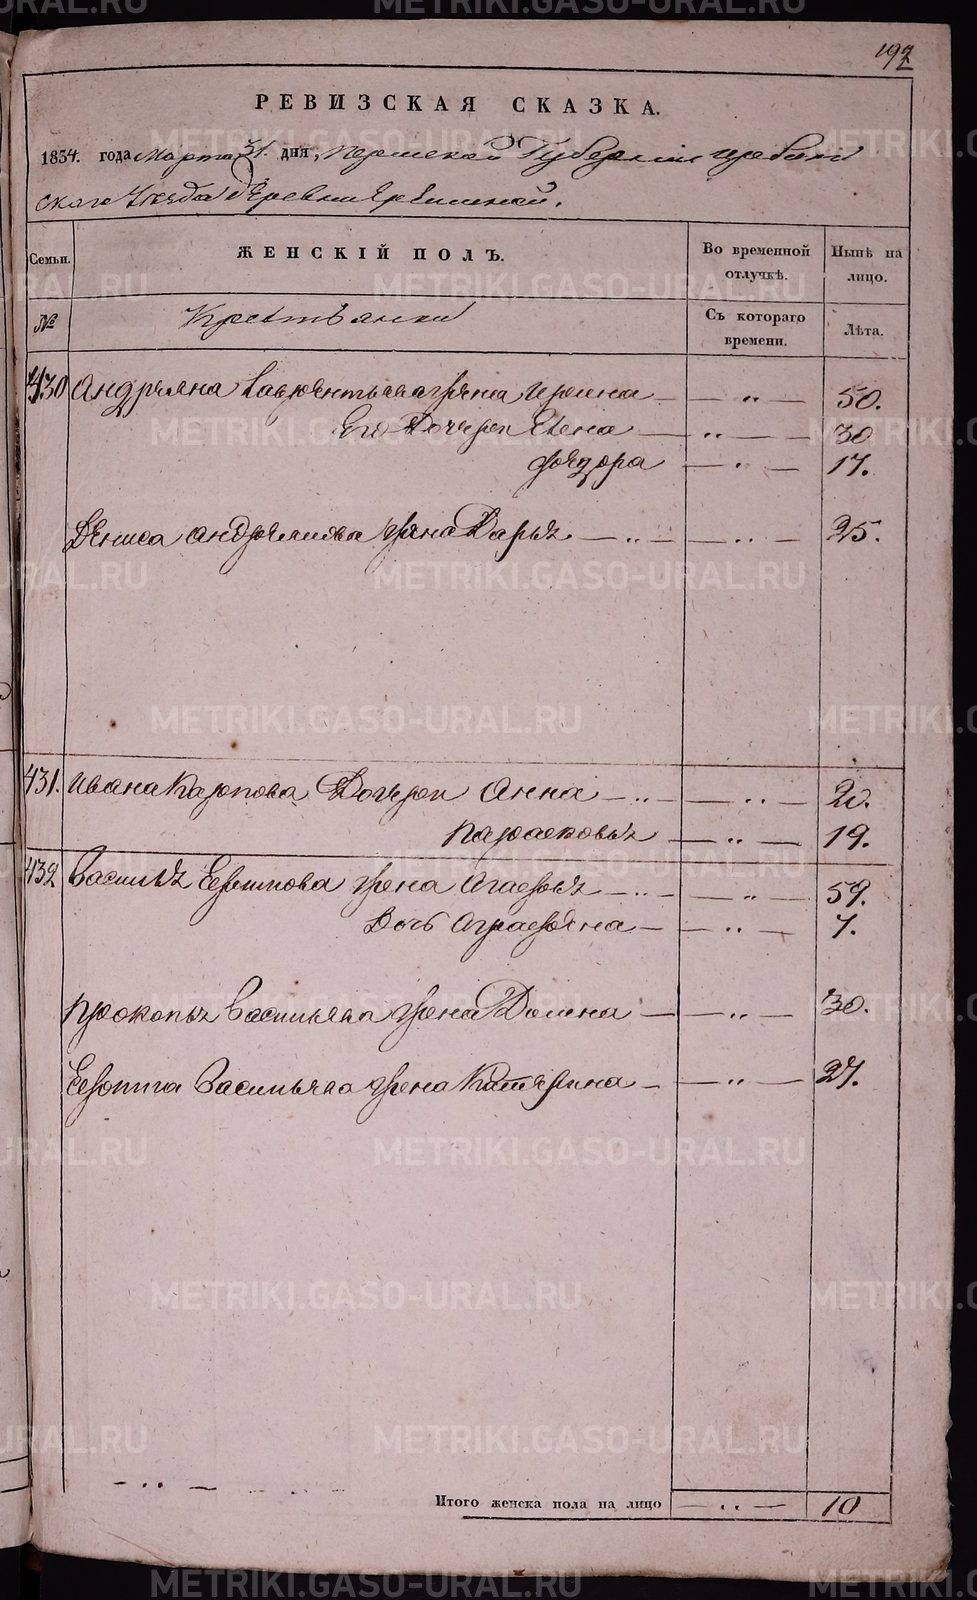 197
РЕВИЗСКАЯ СКАЗКА.
1834. года Марта 31. дня, Пермской Губернии Ирбит
скаго Уезда Деревни
Семьи. ЖЕНСКІЙ ПОЛЪ. Во временной отлучкѣ. Нынѣ на лицо.
№ Крестьянки Съ котораго времени. Лѣта.
430 Андреяна Лаврентьева жена Ирина — — „ — 50.
Его Дочери Елена — „ — — 30
Федора — „ — 17.
Дениса Андреянова жена Дарья — „ — — „ — 25.
431. Ивана Карпова Дочери Анна — „ — — „ — 20.
Парасковья — — „ — 19.
432 Василья Ефимова жена Агафья — „ — — „ — 59.
Дочь Аграфена — — „ — 7.
Прокопья Васильева жена Домна — — „ — 30.
Ефима Васильева жена Катерина — — „ — 27.
— „ —
Итого женска пола на лицо — „ — 10
METRIKI.GASO-URAL.RU